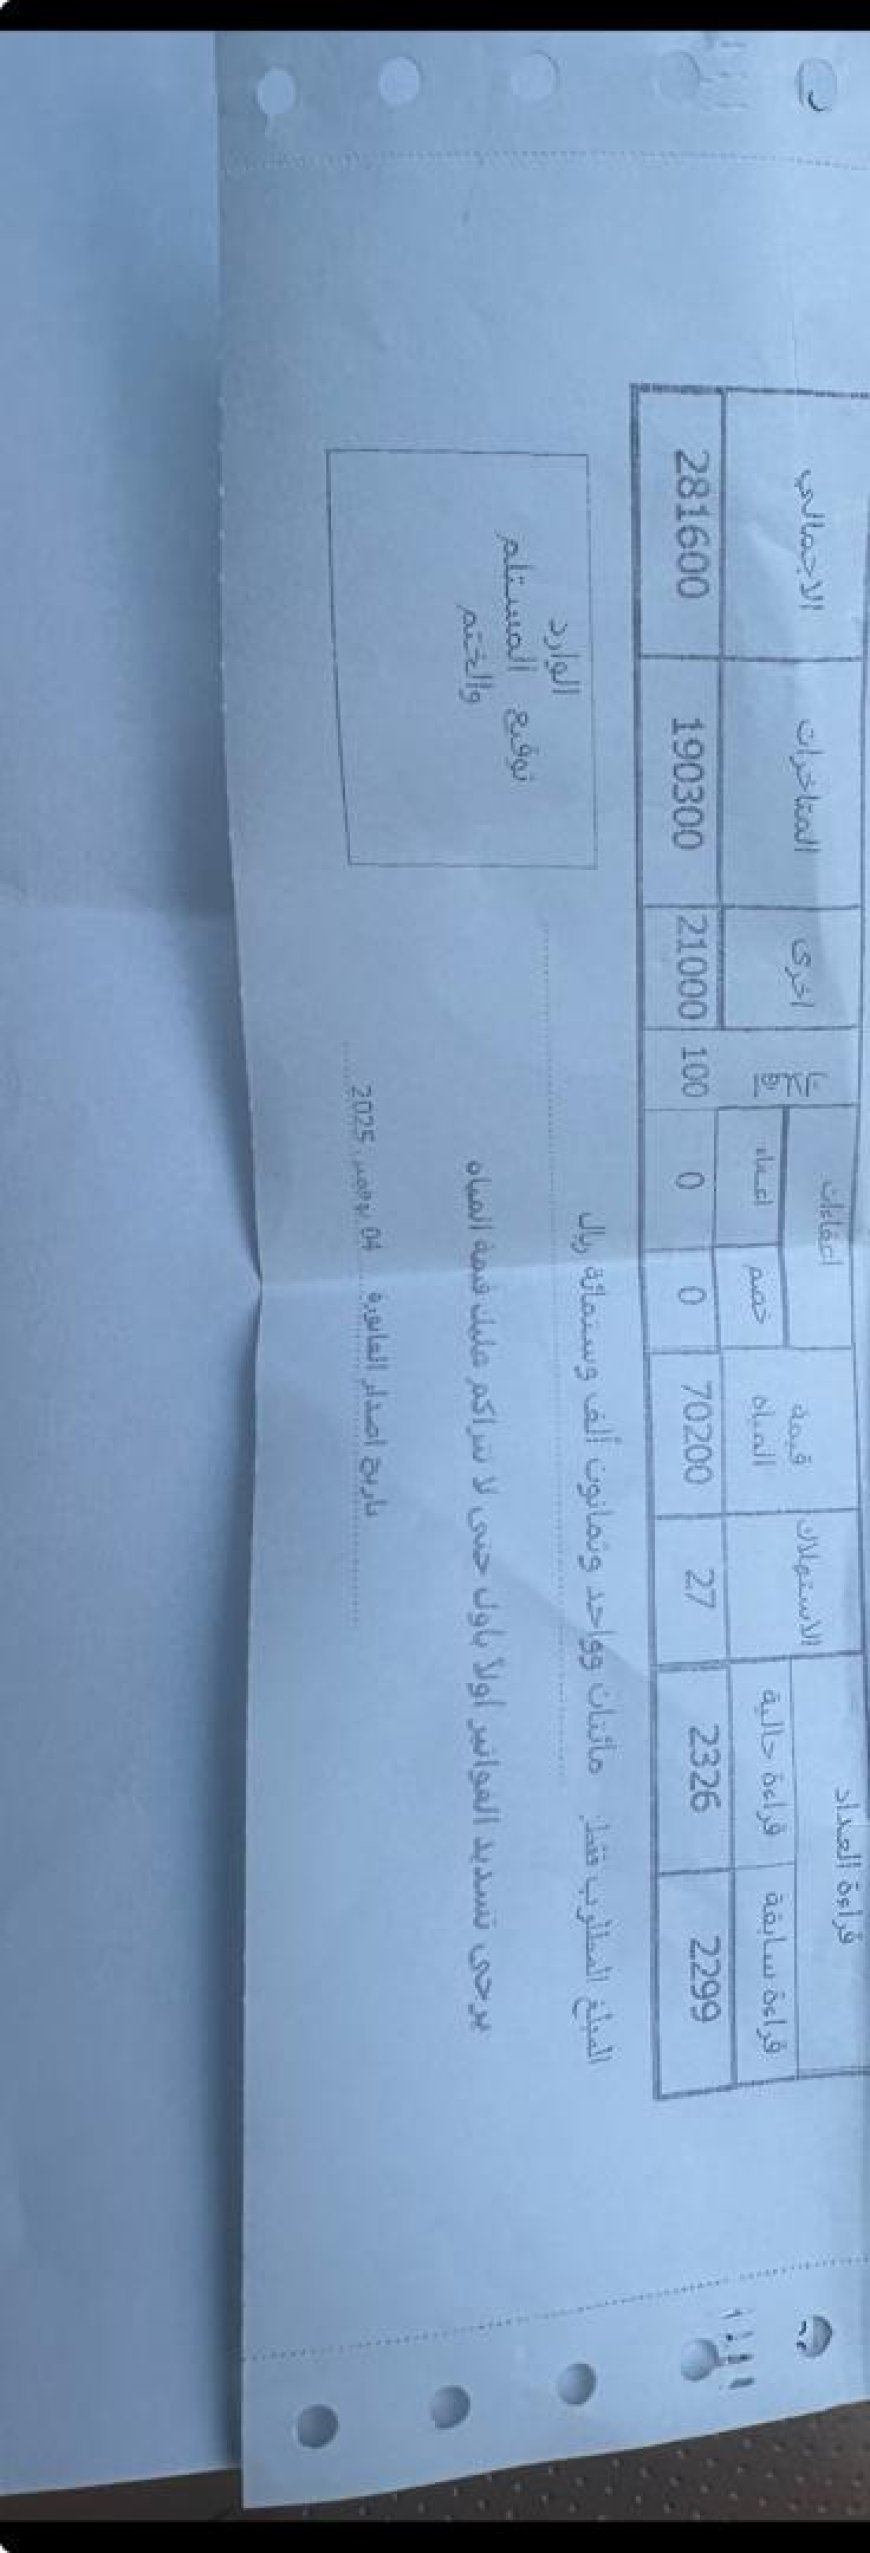 قراءة العداد الاستهلاك قيمة المياه اعفاءات اخرى المتاخرات الاجمالي
قراءة سابقة قراءة حالية خصم اعفاء
2299 2326 27 70200 0 0 100 21000 190300 281600
المبلغ المطلوب فقط مائتان وواحد وثمانون ألف وستمائة ريال
الوارد
توقيع المستلم
والختم
يرجى تسديد الفواتير اولا باول حتى لا تتراكم عليك قيمة المياه
تاريخ اصدار الفاتورة 04 نوفمبر, 2025